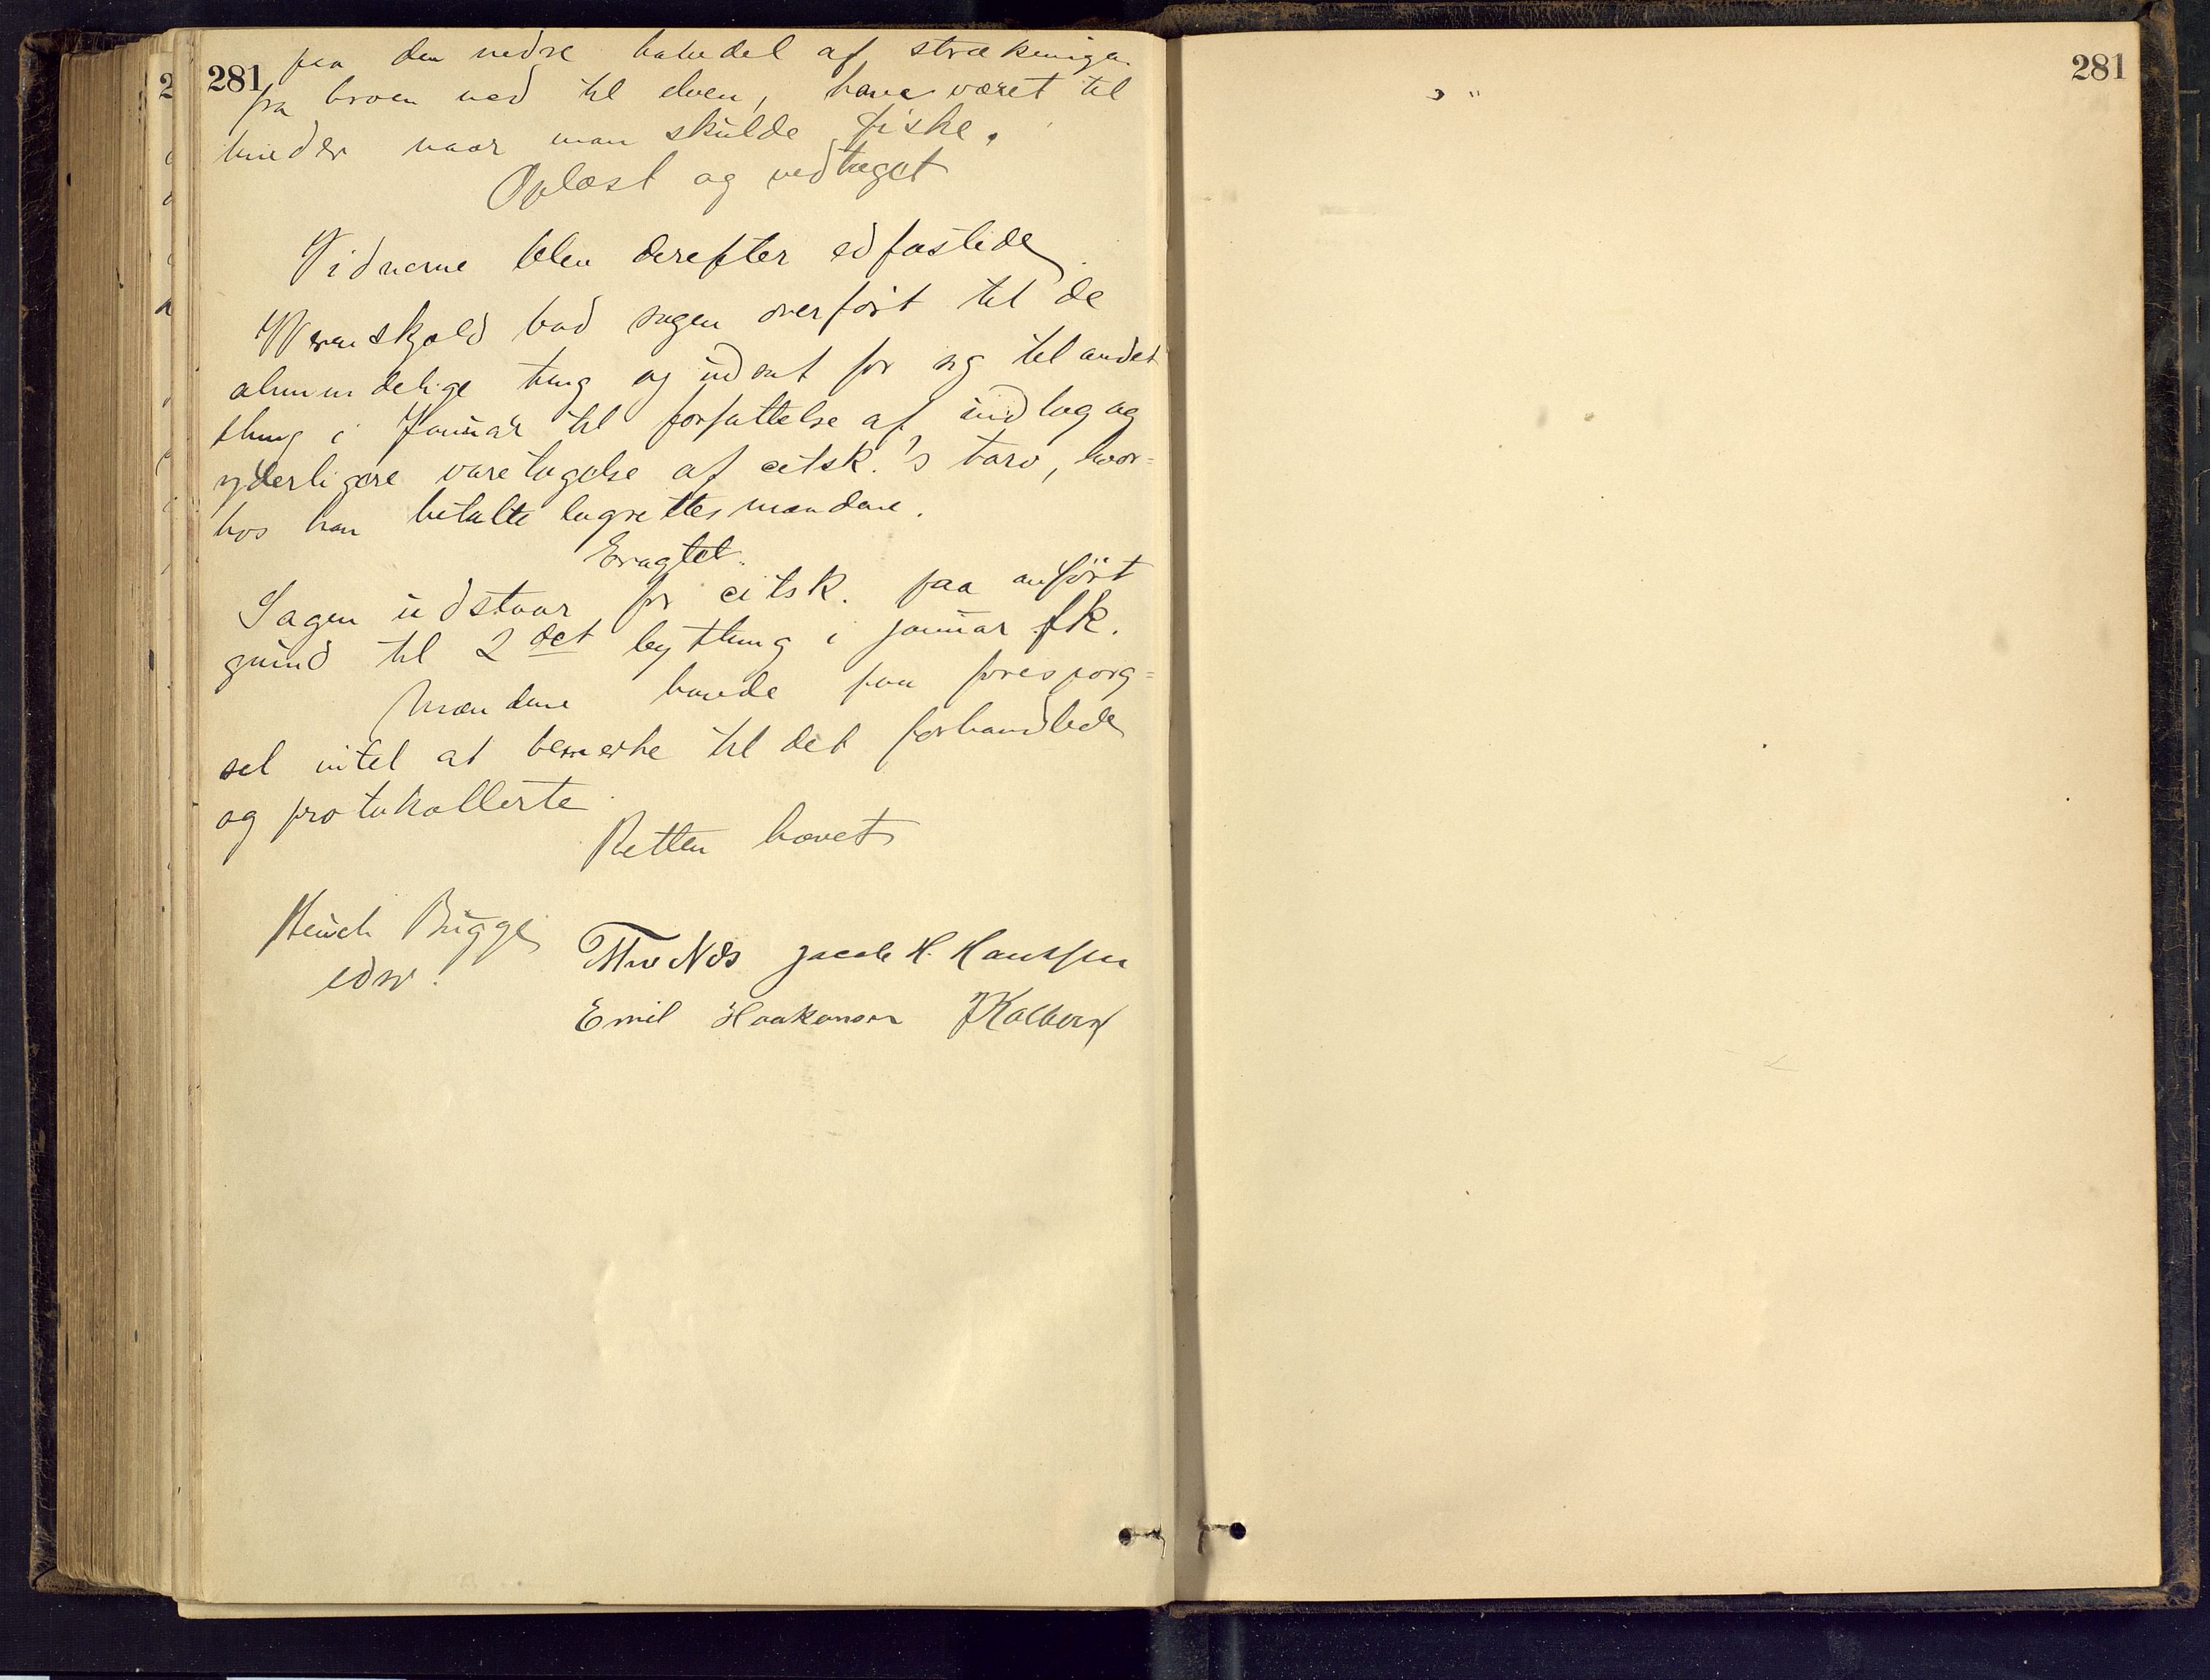 281
281
paa den nedre halvdel af strækningen
fra broen ned til elven, have været til
hinder naar man skulde fiske.
Oplæst og vedtaget
Vidnerne blev derefter edfæstede.
Werenskjold bad sagen overført til de
almindelige ting og udsat for sig til andet
thing i Januar til forfattelse af indlæg og
yderligere varetagelse af citsk.'s tarv, hvor=
hos han betalte lagrettesmændene.
Eragtet.
Sagen udstaar for citsk. paa anført
grund til 2det bything i januar fk.
Mændene havde paa forespørg=
sel intet at bemerke til det forhandlede
og protokollerte
Retten hævet
Henrik Bugge
edsv.
Jacob H. Hanssen
Emil Haakonsen